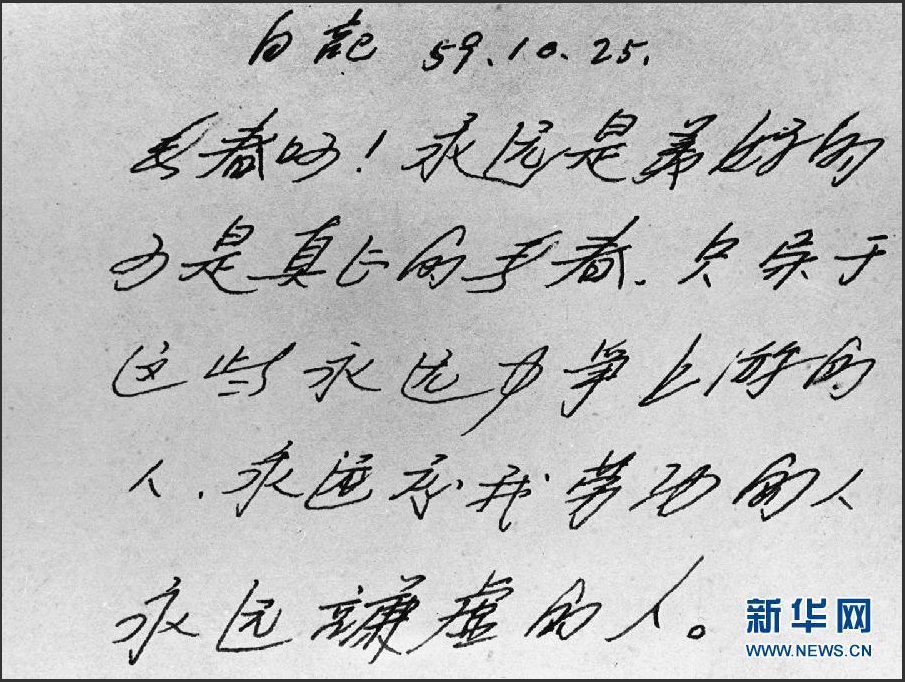 日記 59.10.25.
青春啊！永远是美好的
可是真正的青春.只属于
这些永远力争上游的
人.永远忘我劳动的人
永远謙虚的人。
新华网
WWW.NEWS.CN